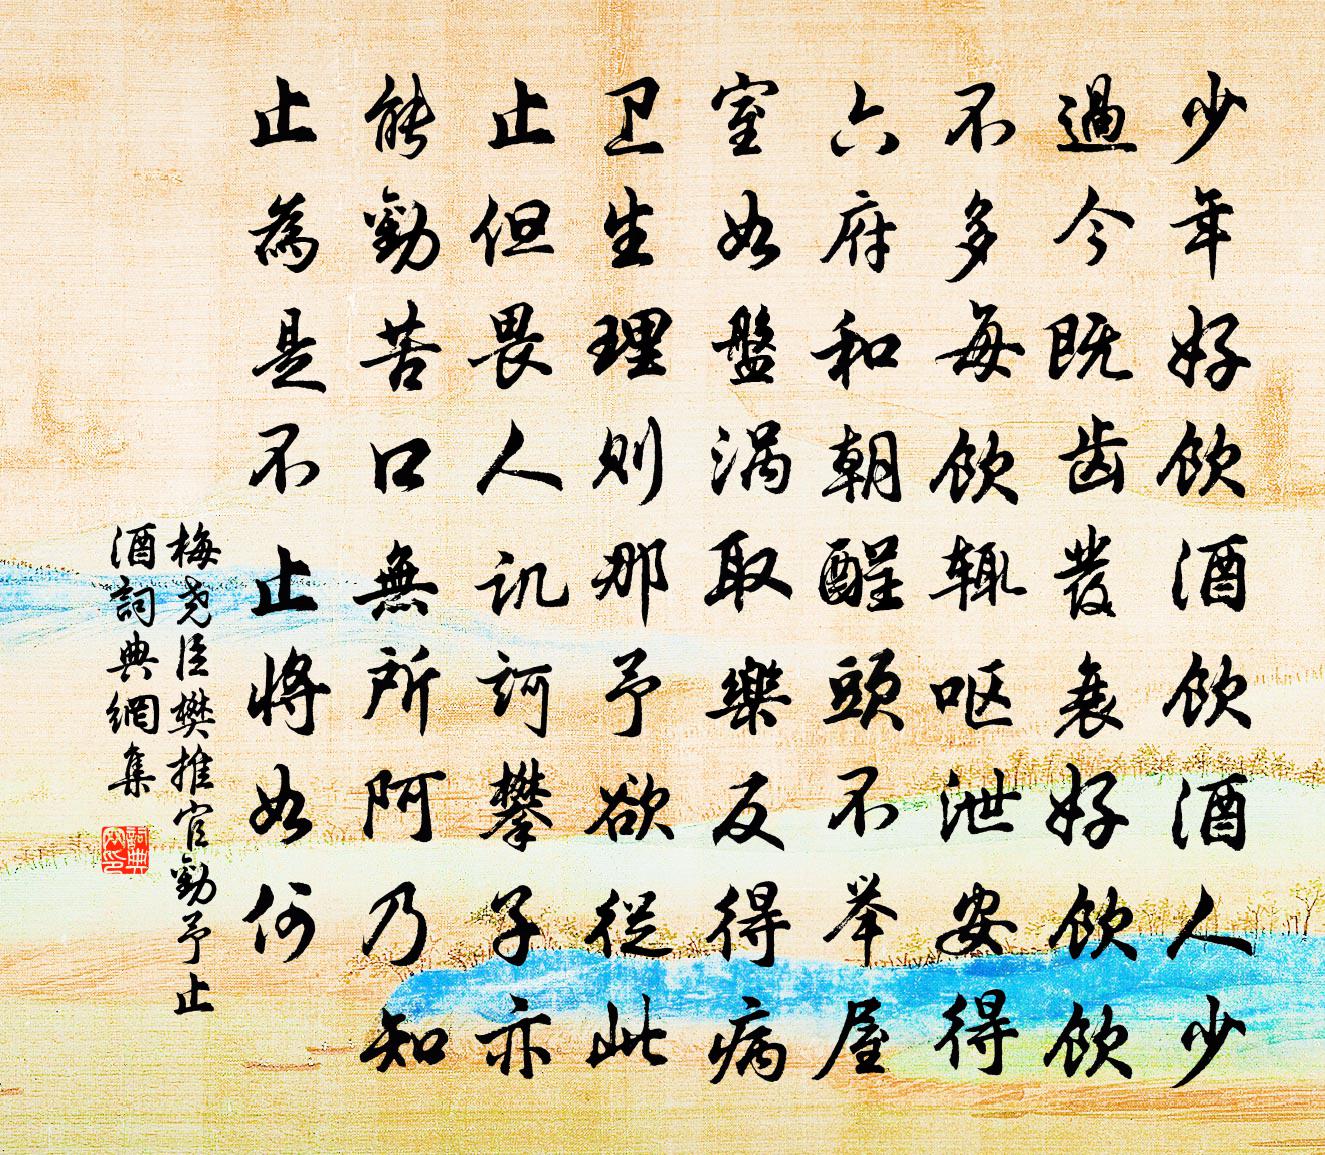 少年好飲酒飲酒人少
過今既齿發衰好飲飲
不多每飲輒呕泄安得
六府和朝醒頭不举屋
室如盤涡取樂反得病
卫生理则那予欲從此
止但畏人讥訶攀子亦
能勸苦口無所阿乃知
止為是不止將如何
梅尧臣樊推官勸予止
酒詞典網集